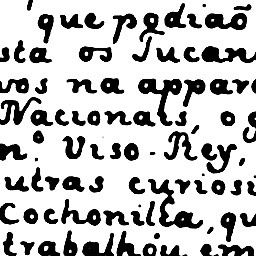 que podiaõ
sta os Tucan
vos na appare
Nacionais, o g
n.º Viso-Rey,
utras curiosi
Cochonilla, qu
trabalhou em